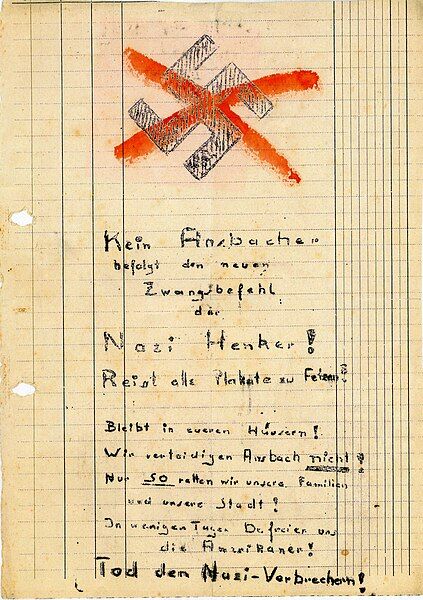 Kein Ansbacher
befolgt den neuen
Zwangsbefehl
där
Nazi Henker!
Reist alle Plakate zu Fetzen!
Bleibt in eueren Häusern!
Wir verteidigen Ansbach nicht!
Nur so retten wir unsere Familien
und unsere Stadt!
In wenigen Tagen befreien uns
die Amerikaner!
Tod den Nazi-Verbrechern!